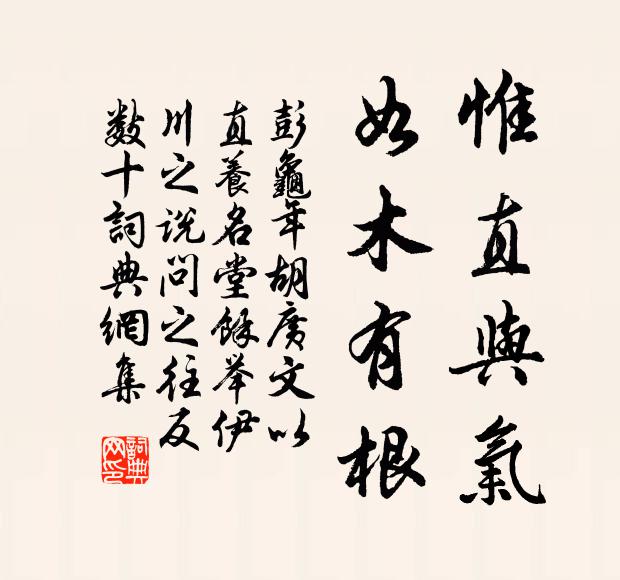 惟直與氣
如木有根
彭龜年胡廣文以
直養名堂餘举伊
川之说問之往反
数十詞典網集
詞典网印